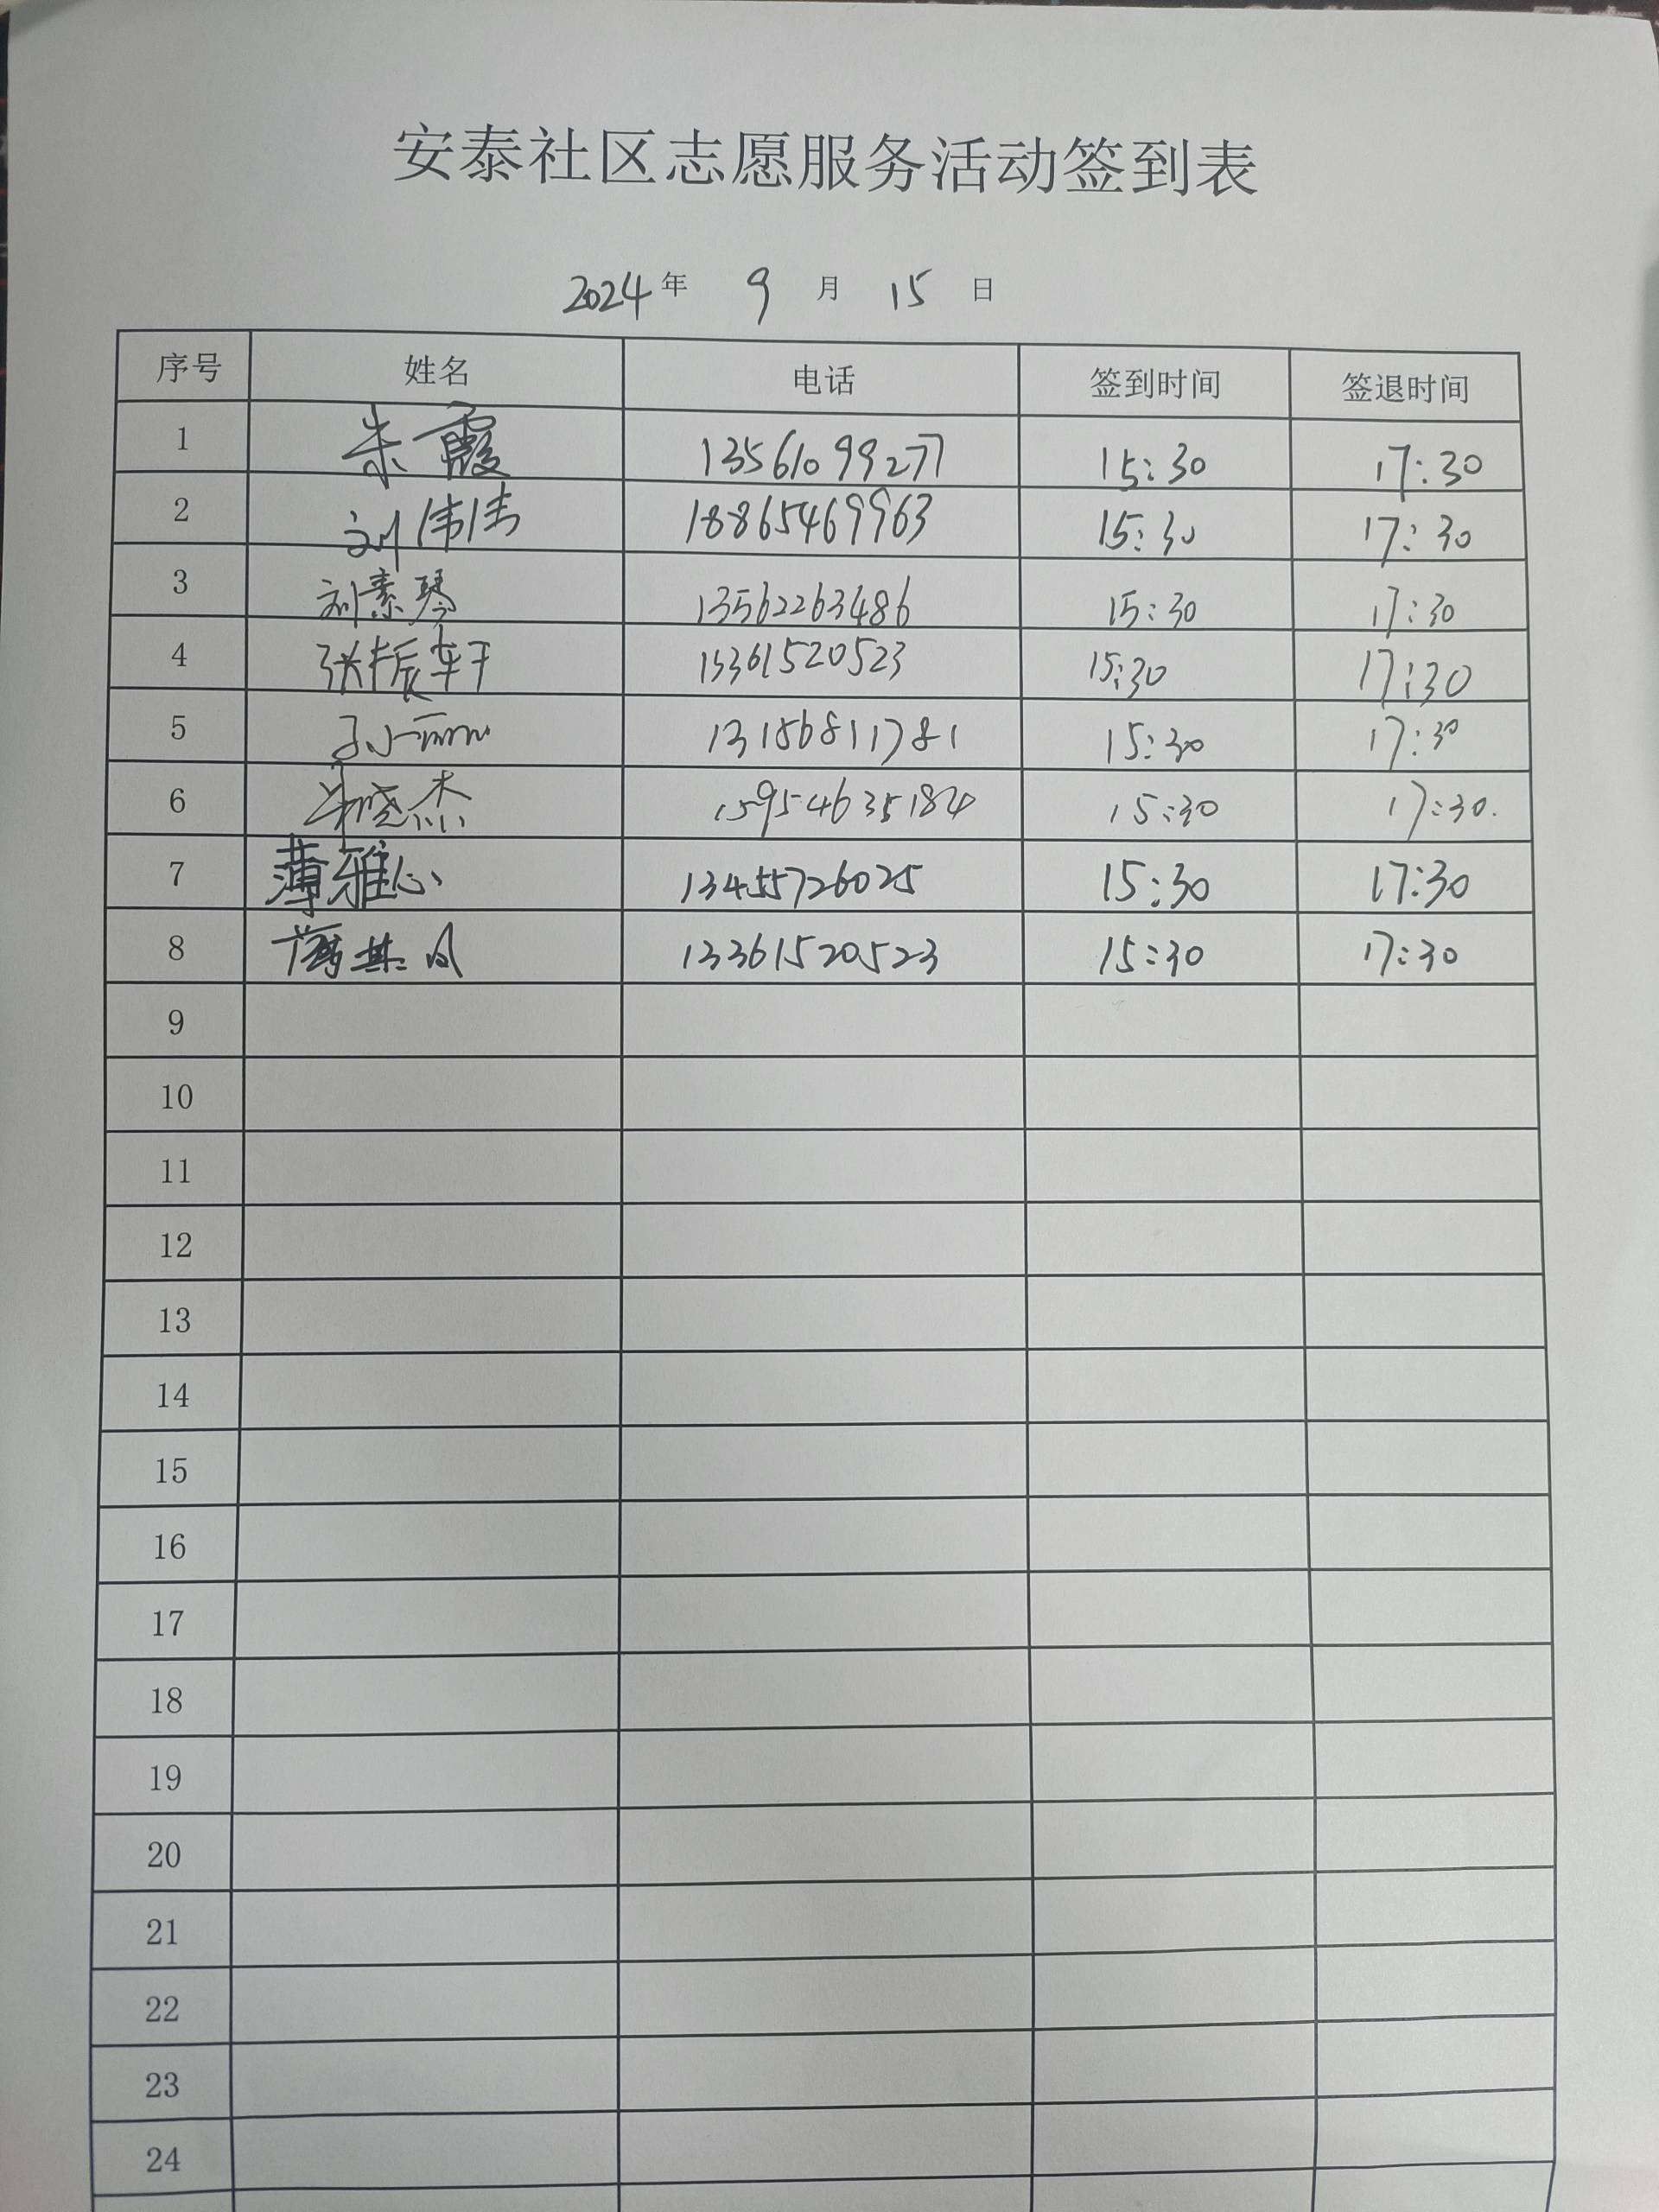 安泰社区志愿服务活动签到表
2024年 9 月 15 日
序号 姓名 电话 签到时间 签退时间
1 朱霞 13561099277 15:30 17:30
2 刘伟伟 18865469963 15:30 17:30
3 刘素琴 13562263486 15:30 17:30
4 张振轩 13361520523 15:30 17:30
5 孙丽 13156811781 15:30 17:30
6 晓杰 15954635184 15:30 17:30.
7 薄雅心 13455726025 15:30 17:30
8 13361520523 15:30 17:30
9
10
11
12
13
14
15
16
17
18
19
20
21
22
23
24